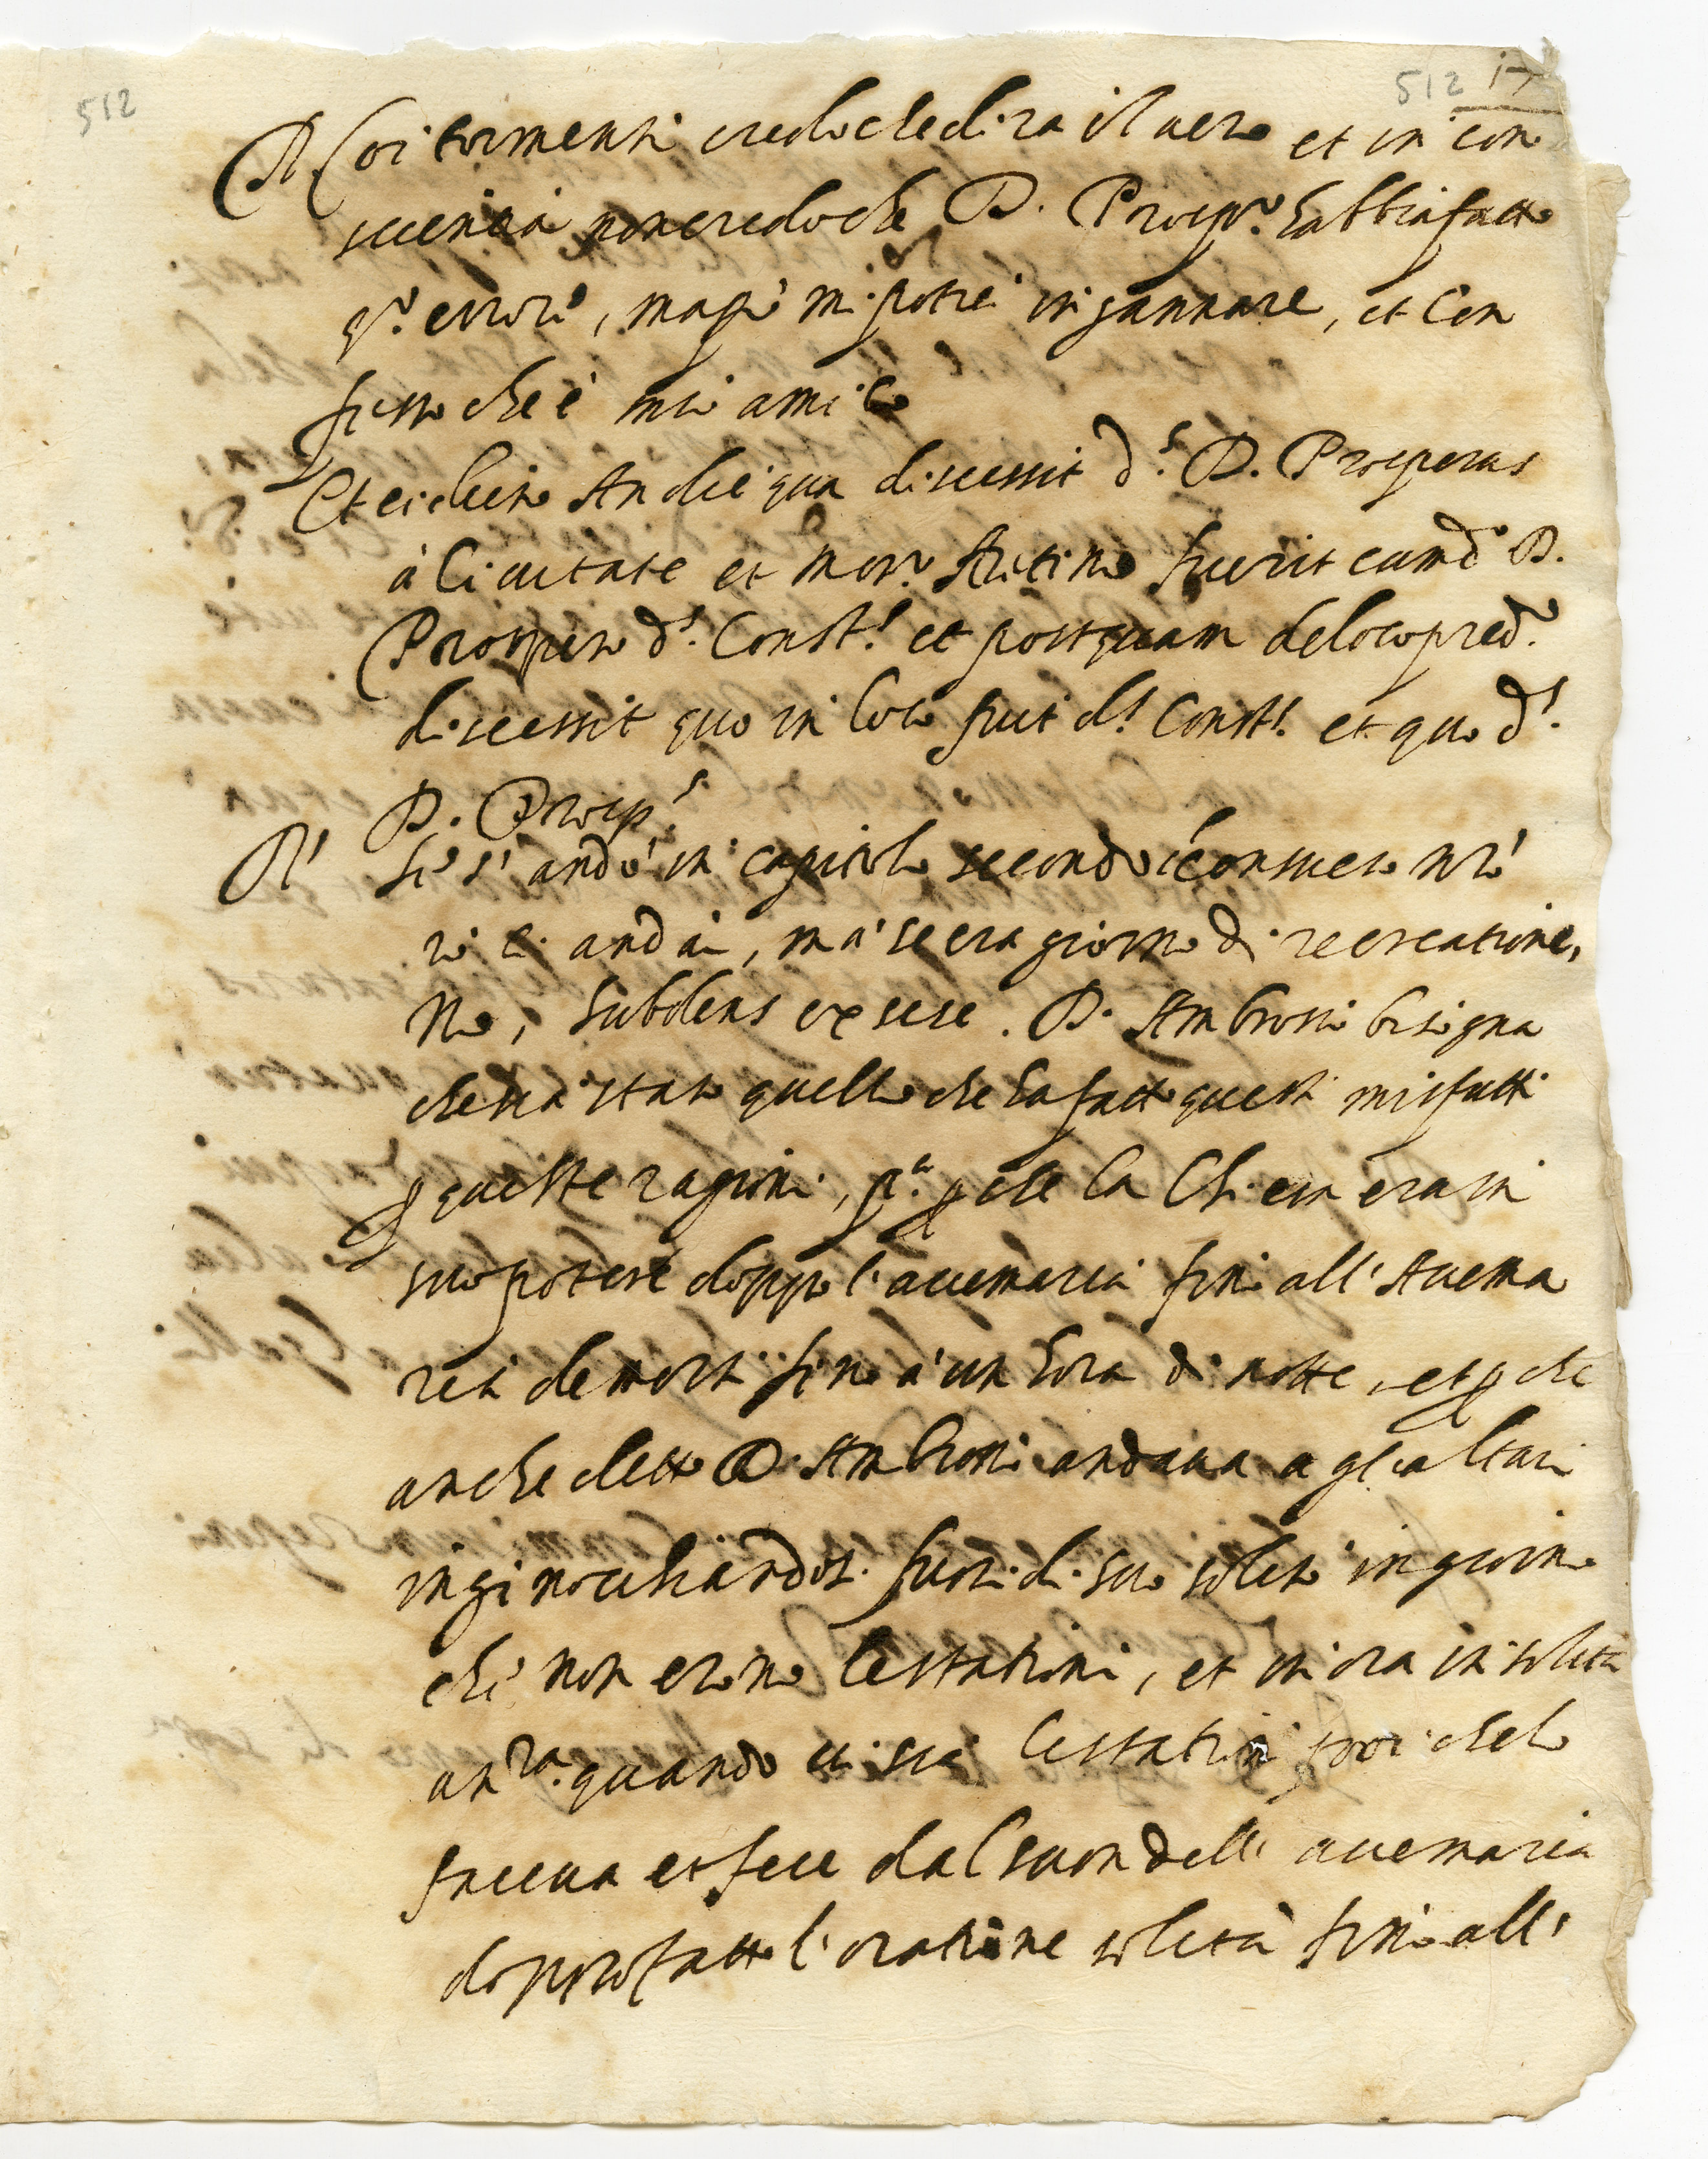 512
512 17
R. Coi tormenti credo che dirà il uero et in con
scienza non credo che D. Prosp.o habbia fatto
q.o errore, ma pur mi potrei ingannare, et con
fesso che è mio amico
Et ei dicto An die qua discessit d.s D. Prosperus
à Ciuitate et mon.rio fuerit cum d.o D.
Prospero d.s Const.s et postquam de loco pred.o
discessit quo in loco fuit d.s Const.s et quo d.s
D. Prosp.s
R.t Se s'andò in capitolo secondo il consueto nro
io ci andai, ma se era giorno di recreatione,
No, subdens ex sese. D. Ambrosio bisogna
che sia stato quello che ha fatto questi misfatti
p queste ragioni, p.a p che la Chiesa era in
suo potere doppo l'auemaria fino all'Auema
ria de morti fino à un hora di notte, et p che
anche detto D. Ambrosio andaua a gl'altari
inginochiandosi fuori di suo solito in giorni
che non erono le stationi, et in ora insolita
an.ra quando ui sia le stationi poi che lo
faceua et fece dal suon dell'auemaria
dopo fatto l'oratione solita fino all'